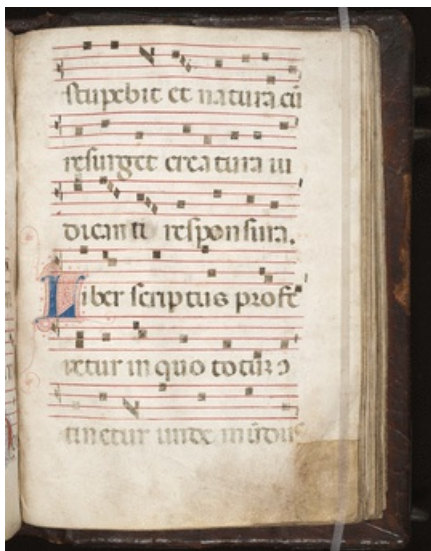 stupebit et natura cū
resurget creatura iu
dicanti responsura.
Liber scriptus profe
retur in quo totum ɔ
tinetur unde mūdus